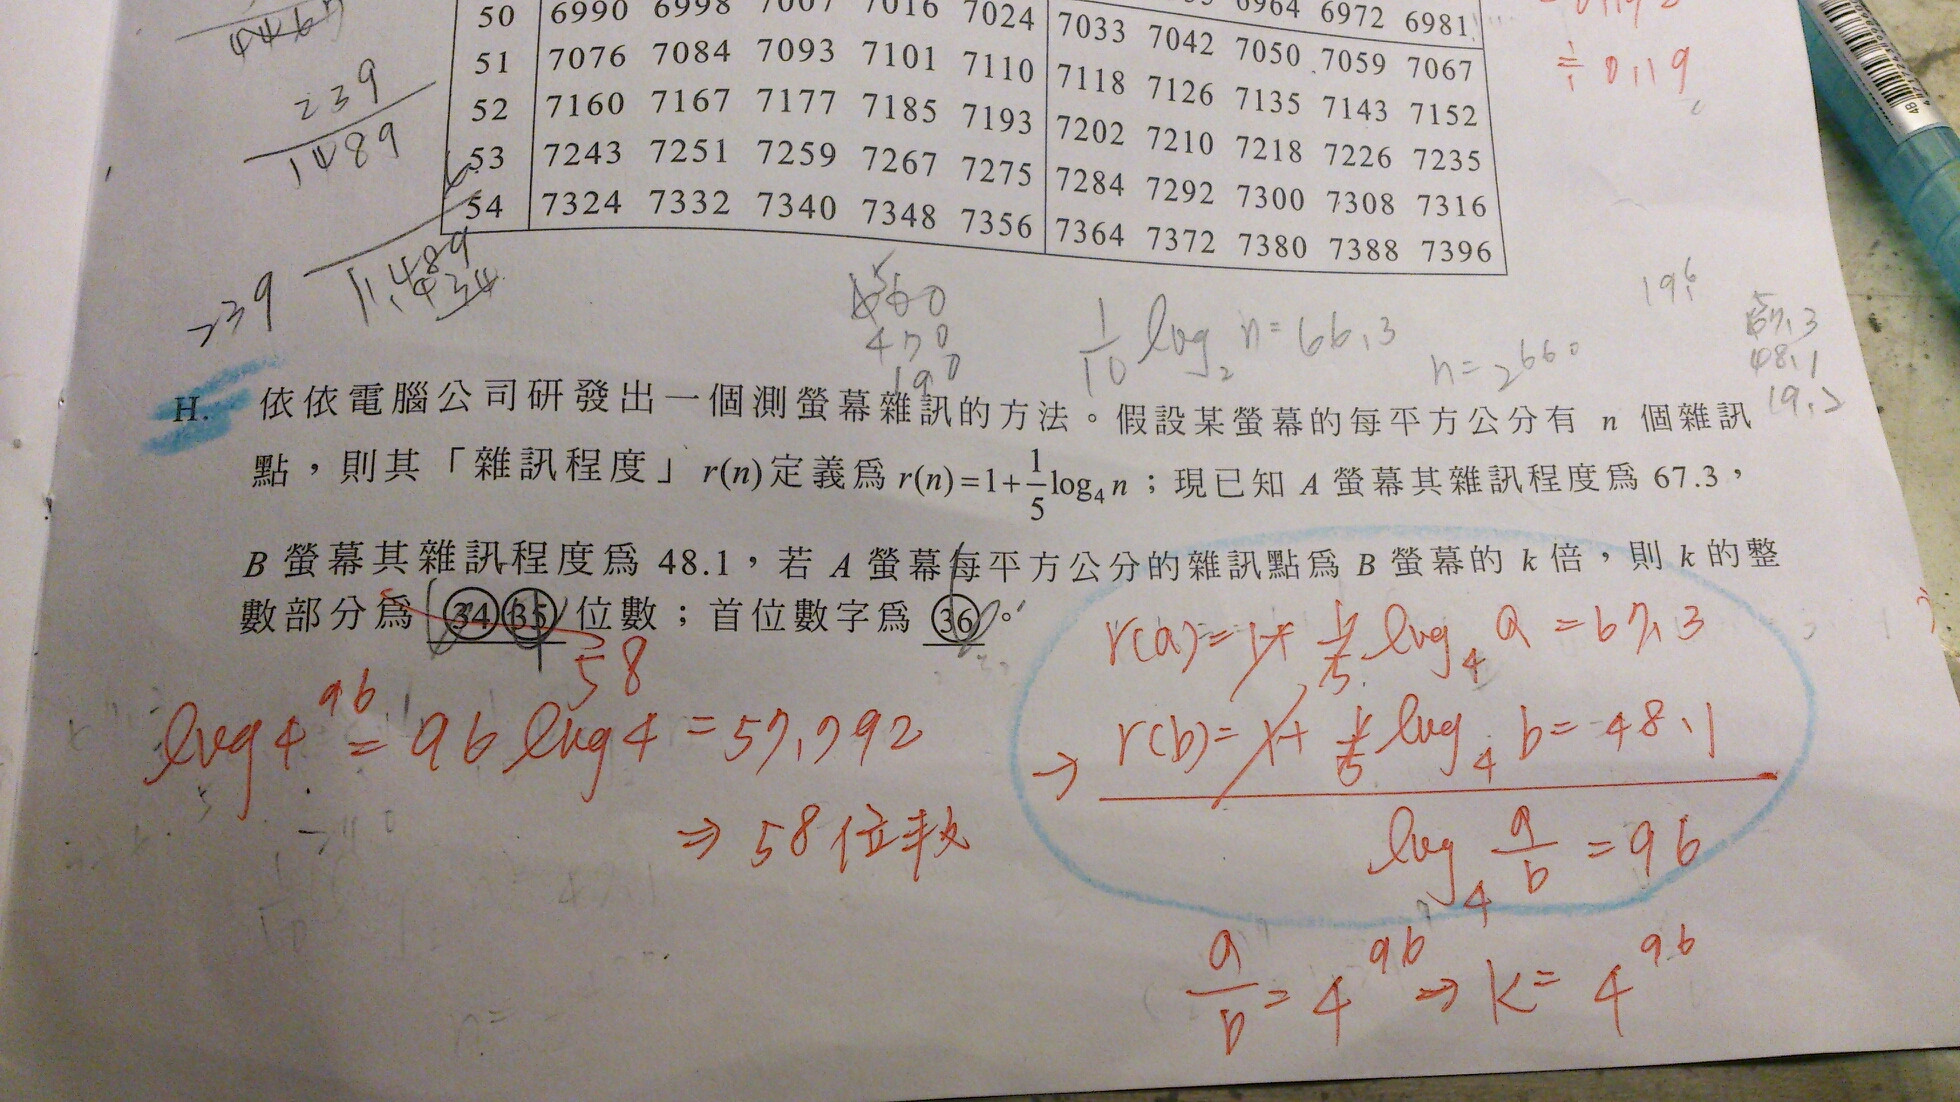 50 6990 6998 7007 7016 7024 7033 7042 7050 7059 7067
6964 6972 6981
51 7076 7084 7093 7101 7110 7118 7126 7135 7143 7152
52 7160 7167 7177 7185 7193 7202 7210 7218 7226 7235
53 7243 7251 7259 7267 7275 7284 7292 7300 7308 7316
54 7324 7332 7340 7348 7356 7364 7372 7380 7388 7396
≑ 0.19
239
1489
239
470
190
1/10 log₂ n = 66.3
n = 2⁶⁶⁰
196
48.1
19.2
H. 依依電腦公司研發出一個測螢幕雜訊的方法。假設某螢幕的每平方公分有 n 個雜訊
點，則其「雜訊程度」r(n)定義爲 r(n)=1+1/5 log₄ n；現已知 A 螢幕其雜訊程度爲 67.3，
B 螢幕其雜訊程度爲 48.1，若 A 螢幕每平方公分的雜訊點爲 B 螢幕的 k 倍，則 k 的整
數部分爲 ㉞㉟ 位數；首位數字爲 ㊱。
58
log 4⁹⁶ = 96 log 4 = 57.792
⇒ 58位数
r(a) = 1 + 1/5 log₄ a = 67.3
→ r(b) = 1 + 1/5 log₄ b = 48.1
log₄ a/b = 96
a/b = 4⁹⁶ ⇒ k = 4⁹⁶